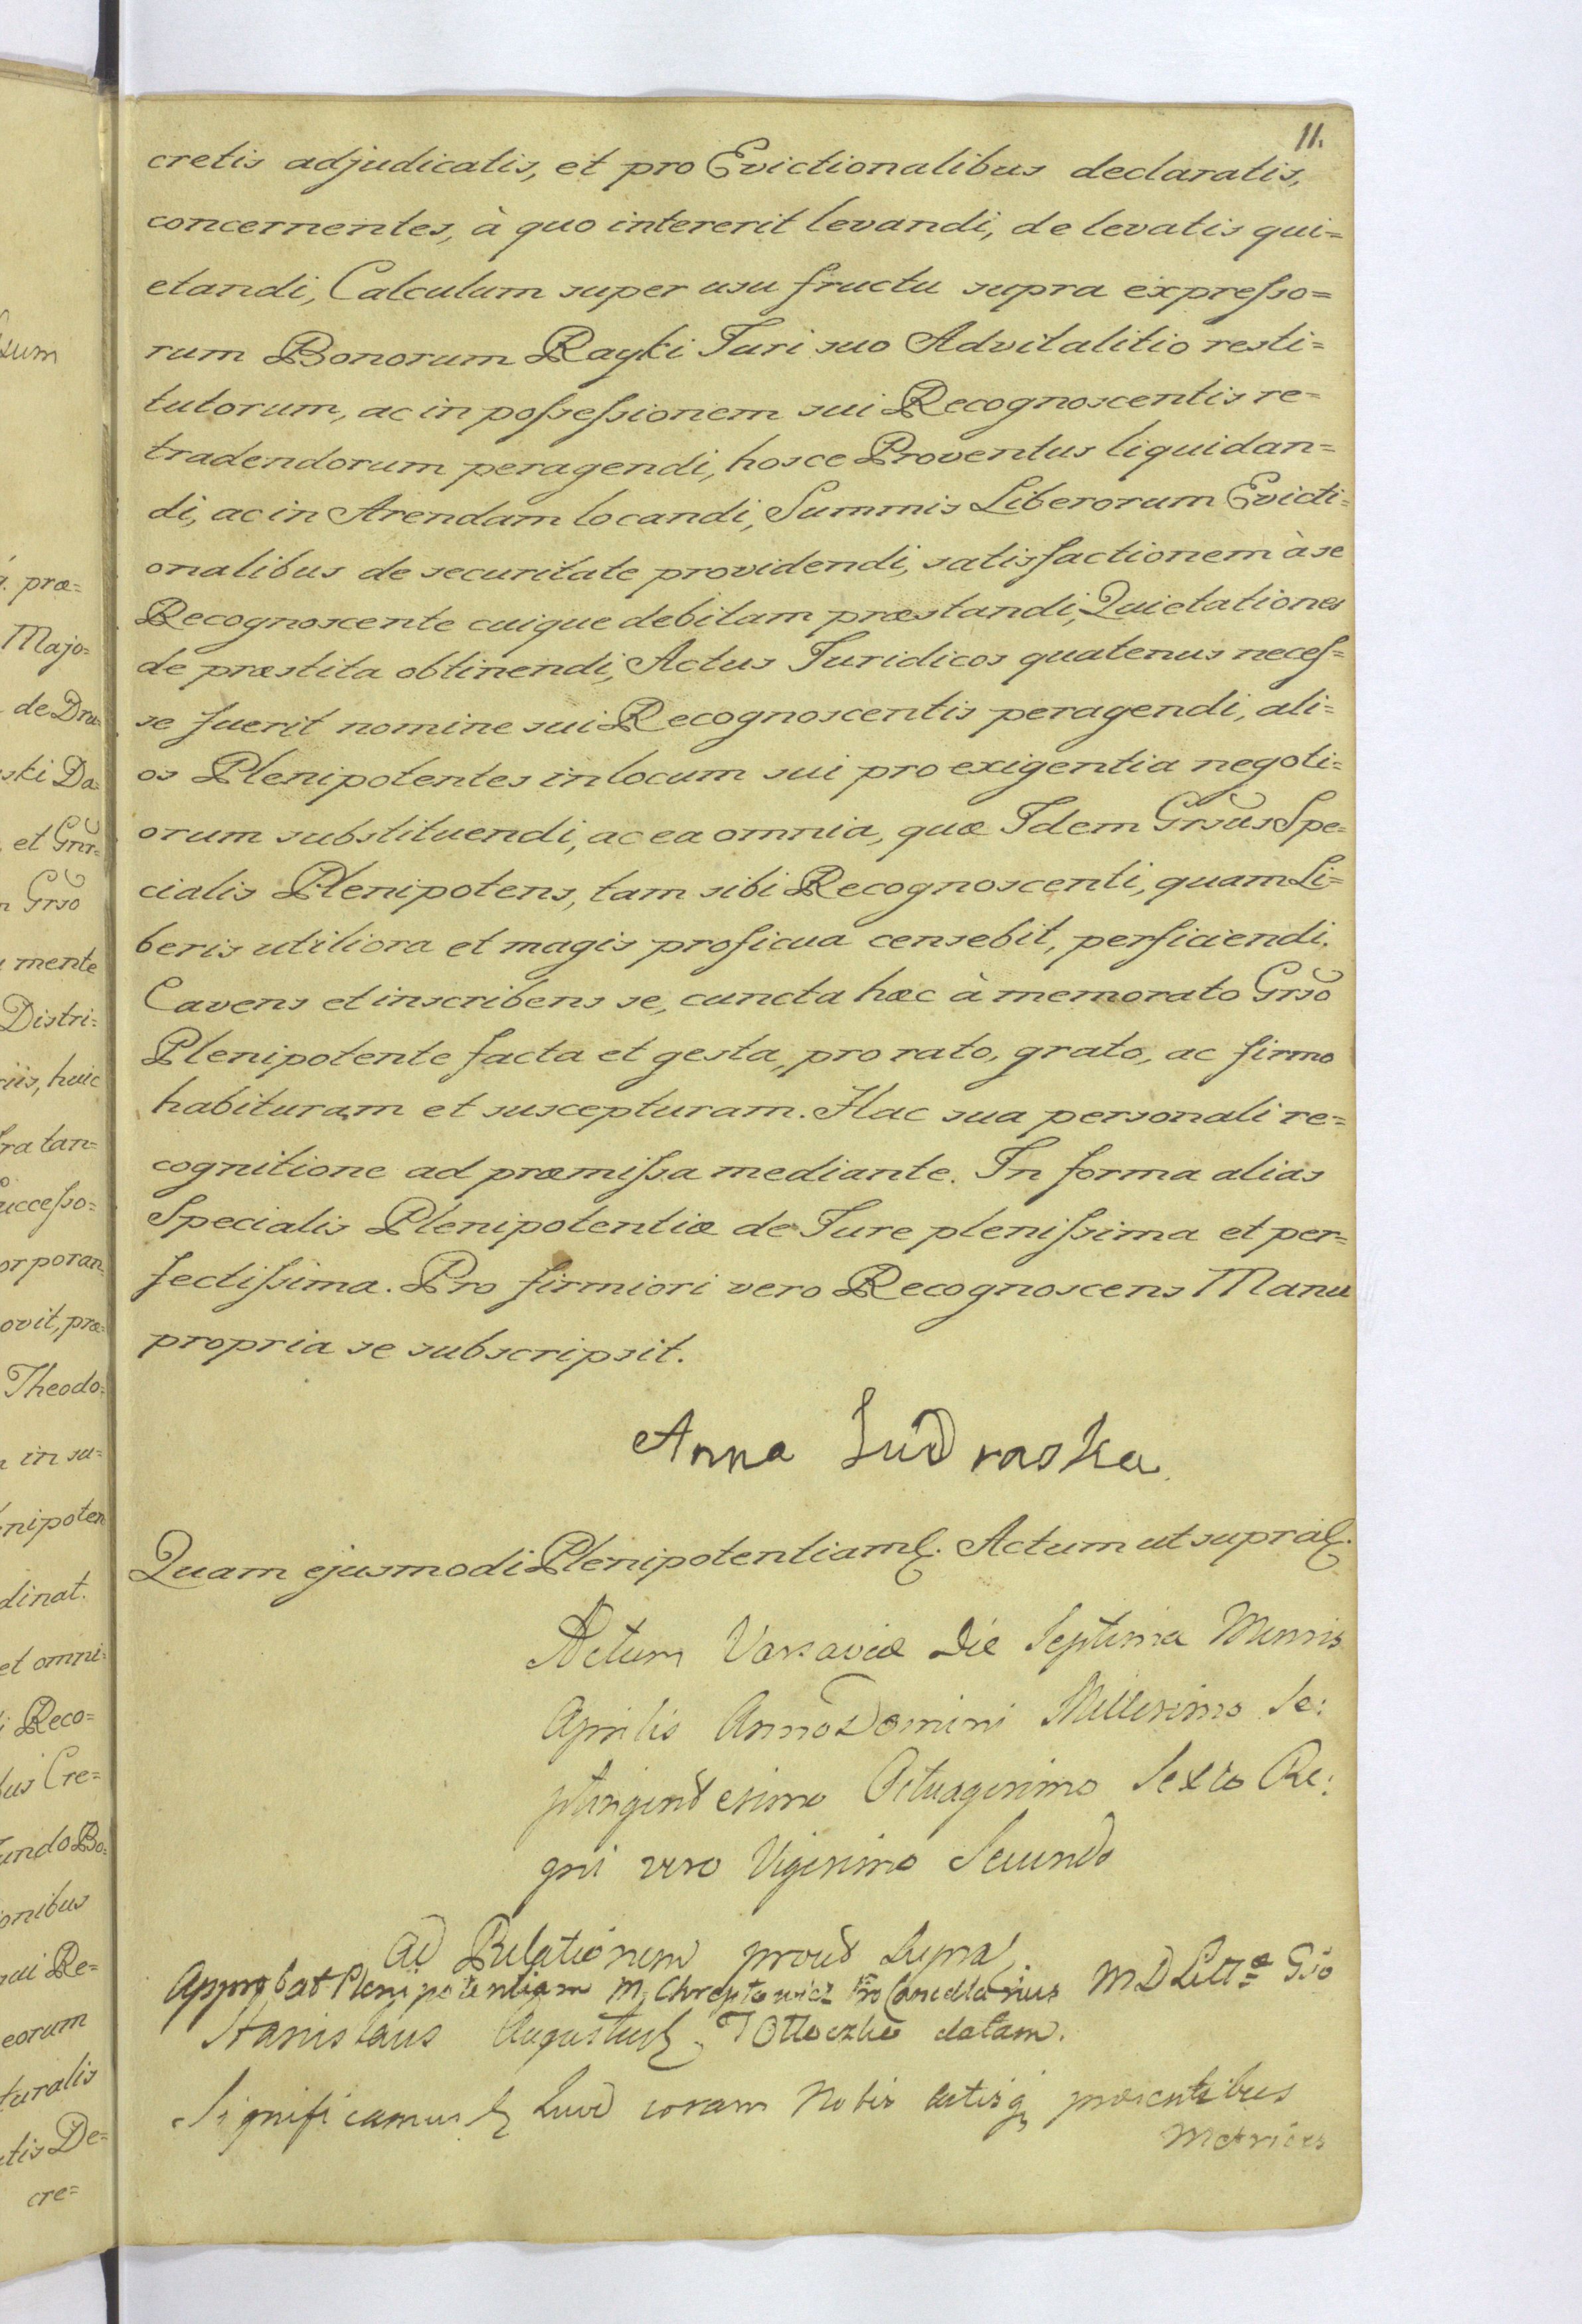 11.
cretis adjudicatis, et pro Evictionalibus declaratis,
concernentes, à quo intererit levandi, de levatis qui=
etandi, Calculum super usu fructu supra expresso=
rum Bonorum Rayki Juri suo Advitalitio resti=
tutorum, ac in possessionem sui Recognoscentis re=
tradendorum peragendi, hosce Proventus liquidan=
di, ac in Arendam locandi, Summis Liberorum Evicti=
onalibus de securitate providendi, satisfactionem à se
Recognoscente cuique debitam præstandi, Quietationes
de præstita obtinendi, Actus Juridicos quatenus neces=
se fuerit nomine sui Recognoscentis peragendi, ali=
os Plenipotentes in locum sui pro exigentia negoti=
orum substituendi, ac ea omnia, quæ Idem Grsus Spe=
cialis Plenipotens, tam sibi Recognoscenti, quam Li=
beris utiliora et magis proficua censebit, perficiendi.
Cavens et inscribens se, cuncta hæc à memorato Grso
Plenipotente facta et gesta, pro rato, grato, ac firmo
habituram et suscepturam. Hac sua personali re=
cognitione ad præmissa mediante. In forma alias
Specialis Plenipotentiæ de Jure plenissima et per=
fectissima. Pro firmiori vero Recognoscens Manu
propria se subscripsit.
Anna
Quam ejusmodi Plenipotentiam. Actum ut supra
Actum Varsaviæ Die Septima Mensis
Aprilis Anno Domini Millesimo Se:
ptingentesimo Octuagesimo Sexto Re:
gni vero Vigesimo Secundo
Ad Relationem prout Supra
Approbat Plenipotentiam M. Chreptowicz Pro Cancellarius M D Litt
Stanislaus Augustus datam.
Significamus coram Nobis præsentibus
sum
præ=
Majo=
de Dru=
ski Da=
et Gnr=
Grso
mente
Distri=
riis, huic
ra tan=
uccesso=
orporan
ovit, præ=
Theodo=
in su=
nipoten
dinat.
et omni=
Reco=
us Cre=
undo Bo=
onibus
sui Re=
eorum
turalis
tis De=
cre=